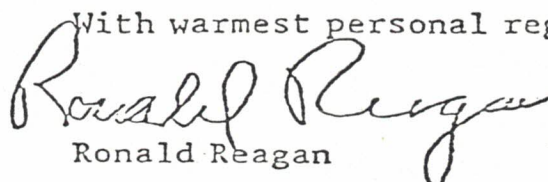 With warmest personal reg
Ronald Reagan
Ronald Reagan